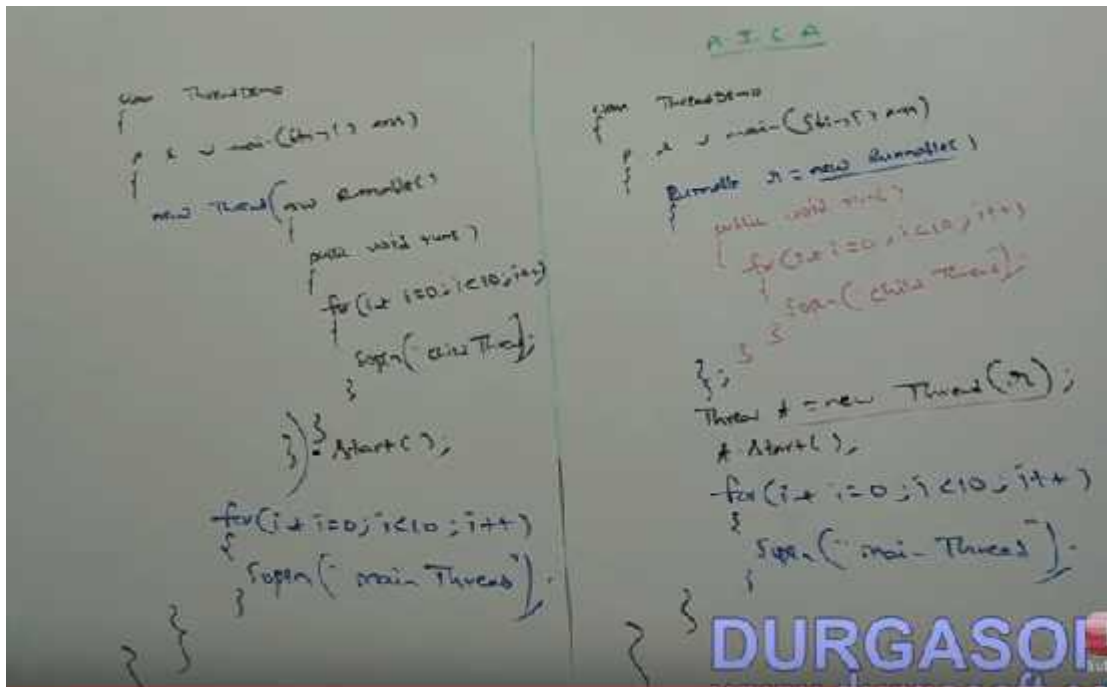 class ThreadDemo
{
p s v main(String[] args)
{
new Thread(new Runnable()
{
public void run()
{
for(int i=0; i<10; i++)
{
Sopln("child Thread");
}
}
}).start();
for(int i=0; i<10; i++)
{
Sopln("main Thread");
}
}
}
A.I.C.A
class ThreadDemo
{
p s v main(String[] args)
{
Runnable r = new Runnable()
{
public void run()
{
for(int i=0; i<10; i++)
{
Sopln("child Thread");
}
}
};
Thread t = new Thread(r);
t.start();
for(int i=0; i<10; i++)
{
Sopln("main Thread");
}
}
}
DURGASO